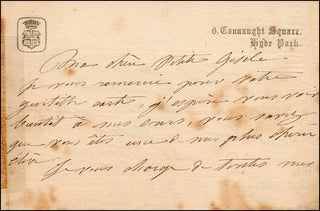 6. Connaught Square,
Hyde Park.
Ma chère Petite Gisèle
Je vous remercie pour votre
gentille carte, j'espère vous voir
bientôt à mes cours, vous savez
que vous êtes une de mes plus chères
élèves
Je vous charge de toutes mes